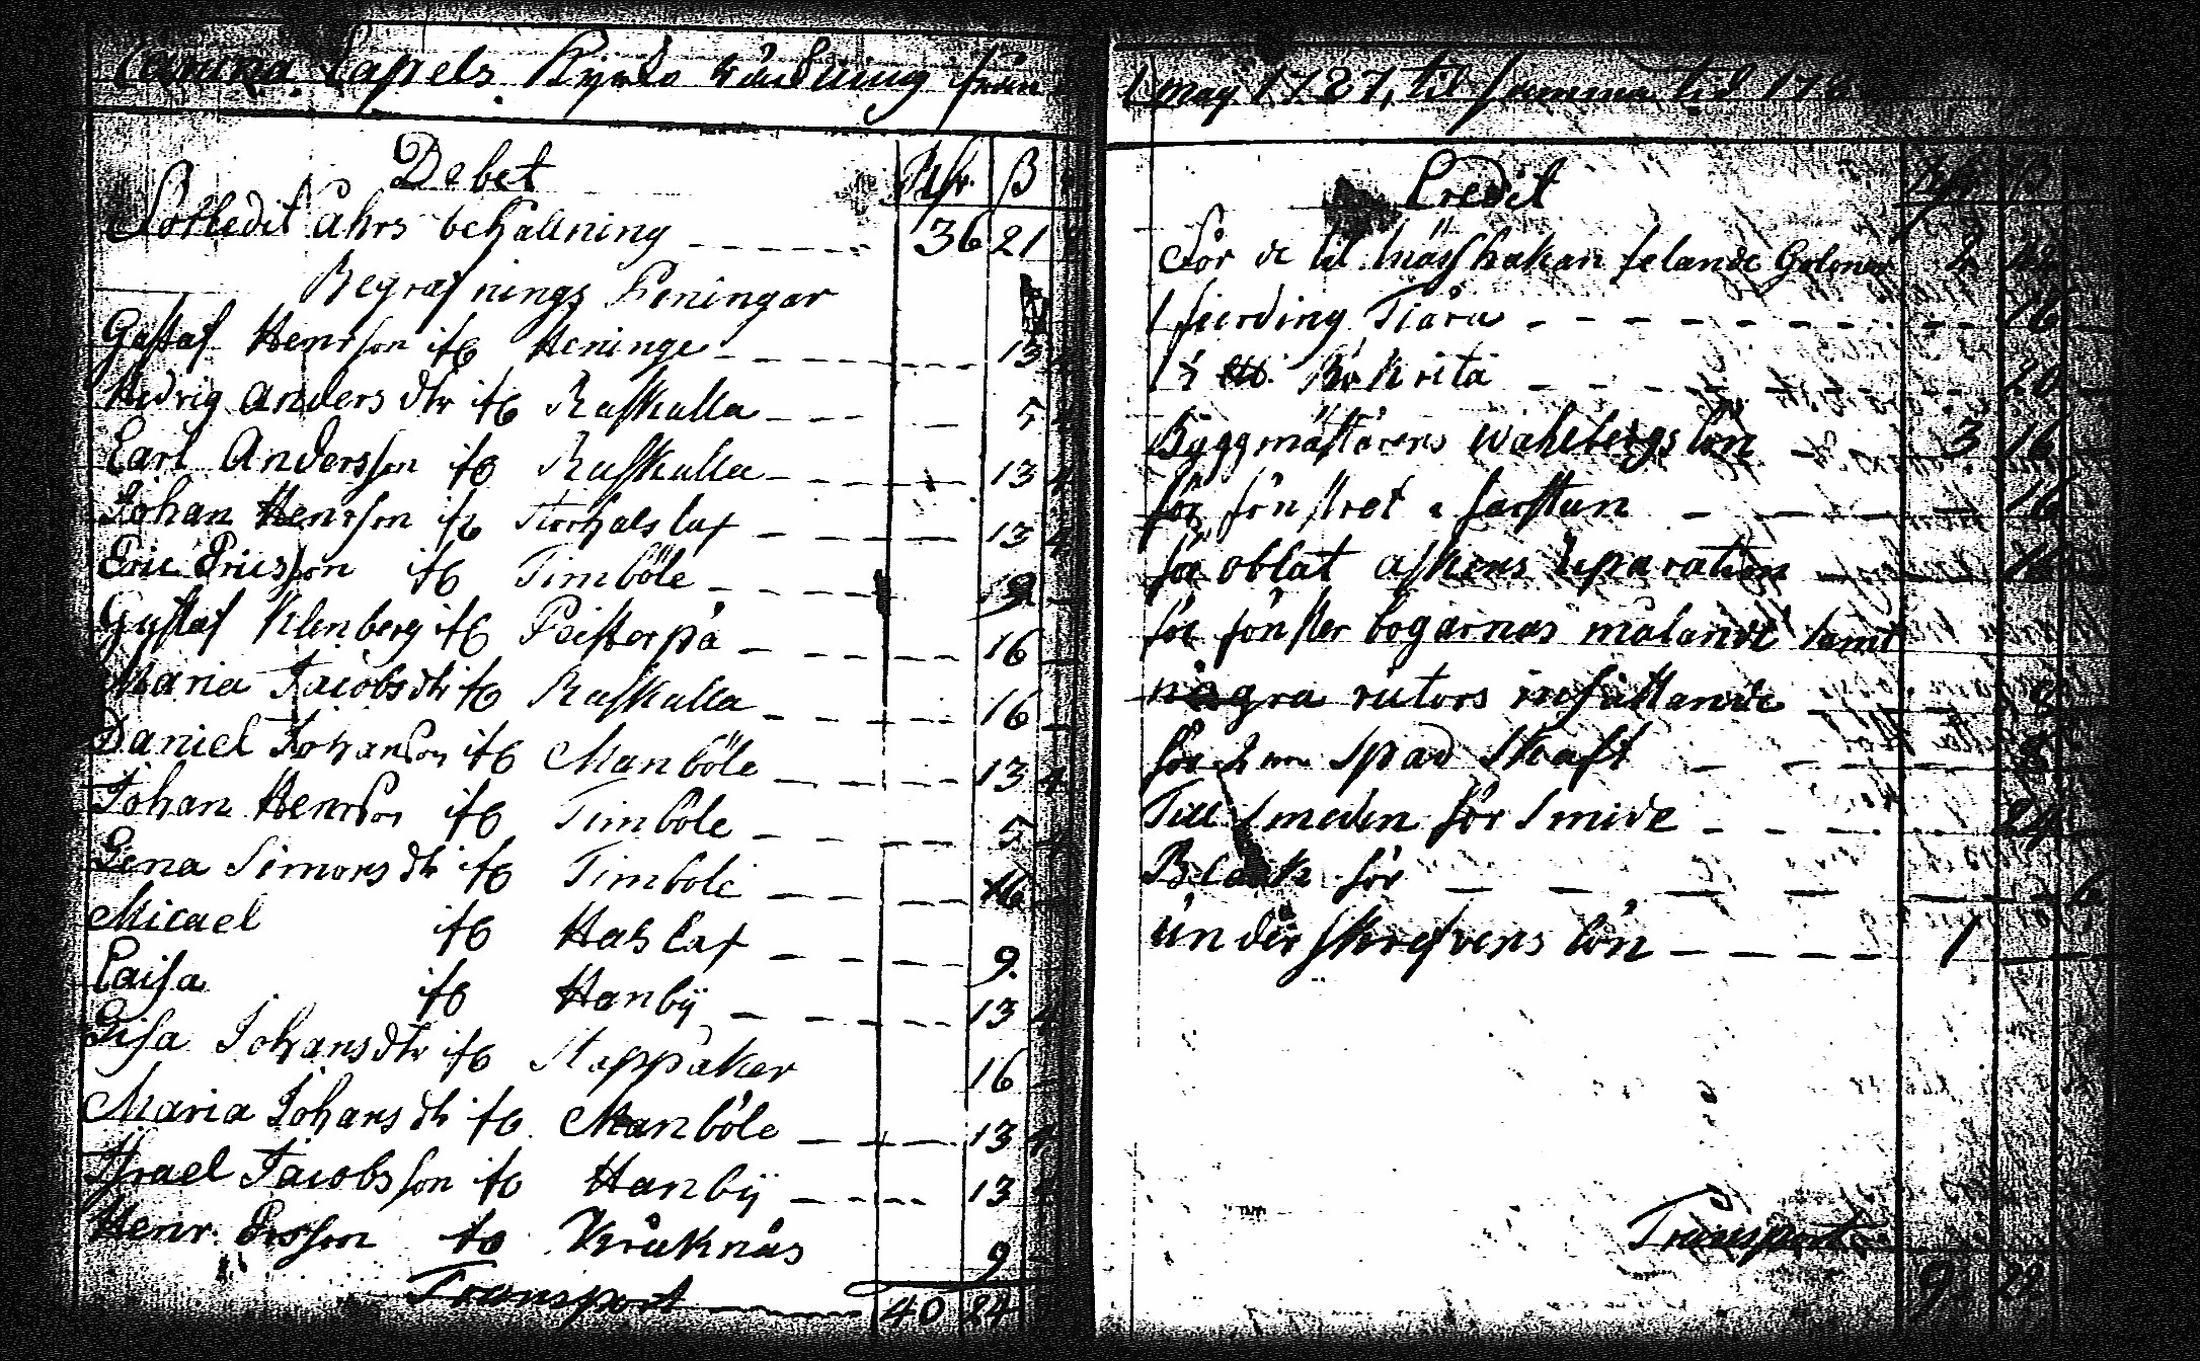 Capels Kyrko räkning ifrån
1 maij 1787, til samma tid 178
Debet Rdr ß
Förledit åhrs behållning 36 21
Begrafnings Peningar
Gustaf Henrson ifr Heninge 13 4
Hedvig Andersdtr ifr Raskulla 5 4
Carl Andersson ifr Raskulla 13 4
Johan Henrson ifr 13 4
Eric Ericsson ifr Timböle 9
Gustaf Klenberg ifr Peisterpå 16
Maria Jacobsdtr ifr Raskulla 16
Daniel Johanson ifr Manböle 13 4
Johan Henrson ifr Timböle 5 4
Lena Simonsdtr ifr Timböle 16
Micael ifr Haslax 9.
Caisa ifr Hanbÿ 13 4
Lisa Johansdtr ifr Stappåker 16
Maria Johansdtr ifr Manböle 13 4
Israel Jacobsson ifr Hanbÿ 13 4
Henr. Ersson Kråknäs 9
Transport 40 24
Credit
För de til Mässhakan felande Galoner 2
1 fierding Tiära 16
Krita 20
Byggmästarens Wahlbergs lön 3 16
för fönstret i farstun 16
för oblat askens reparation 16
för fönster bogarnas målande samt
några rutors insättande 8
för 2 spad skaft 8
Till Smeden för Smide 24
Bläck för 6
underskrefvens lön 1
Transport
9